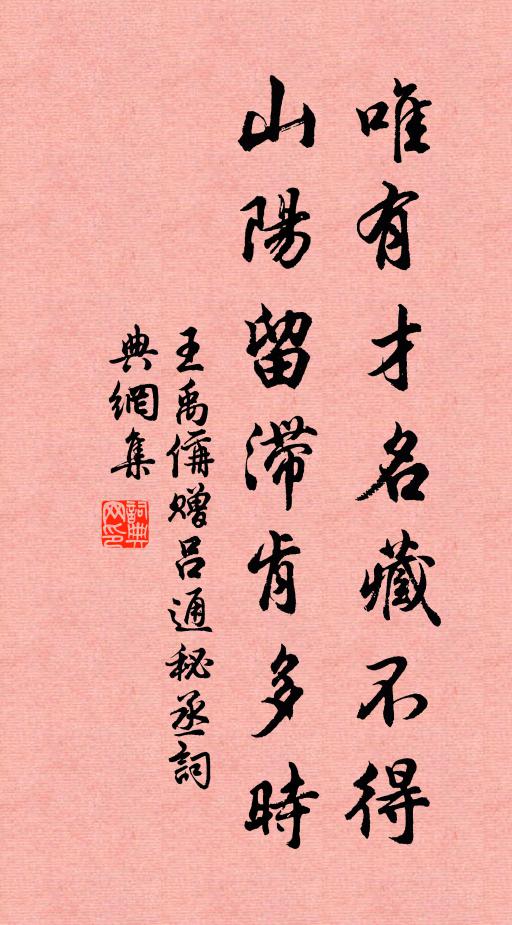 唯有才名藏不得
山陽留滯肯多時
王禹偁贈呂通秘丞詞
典網集
詞典网印